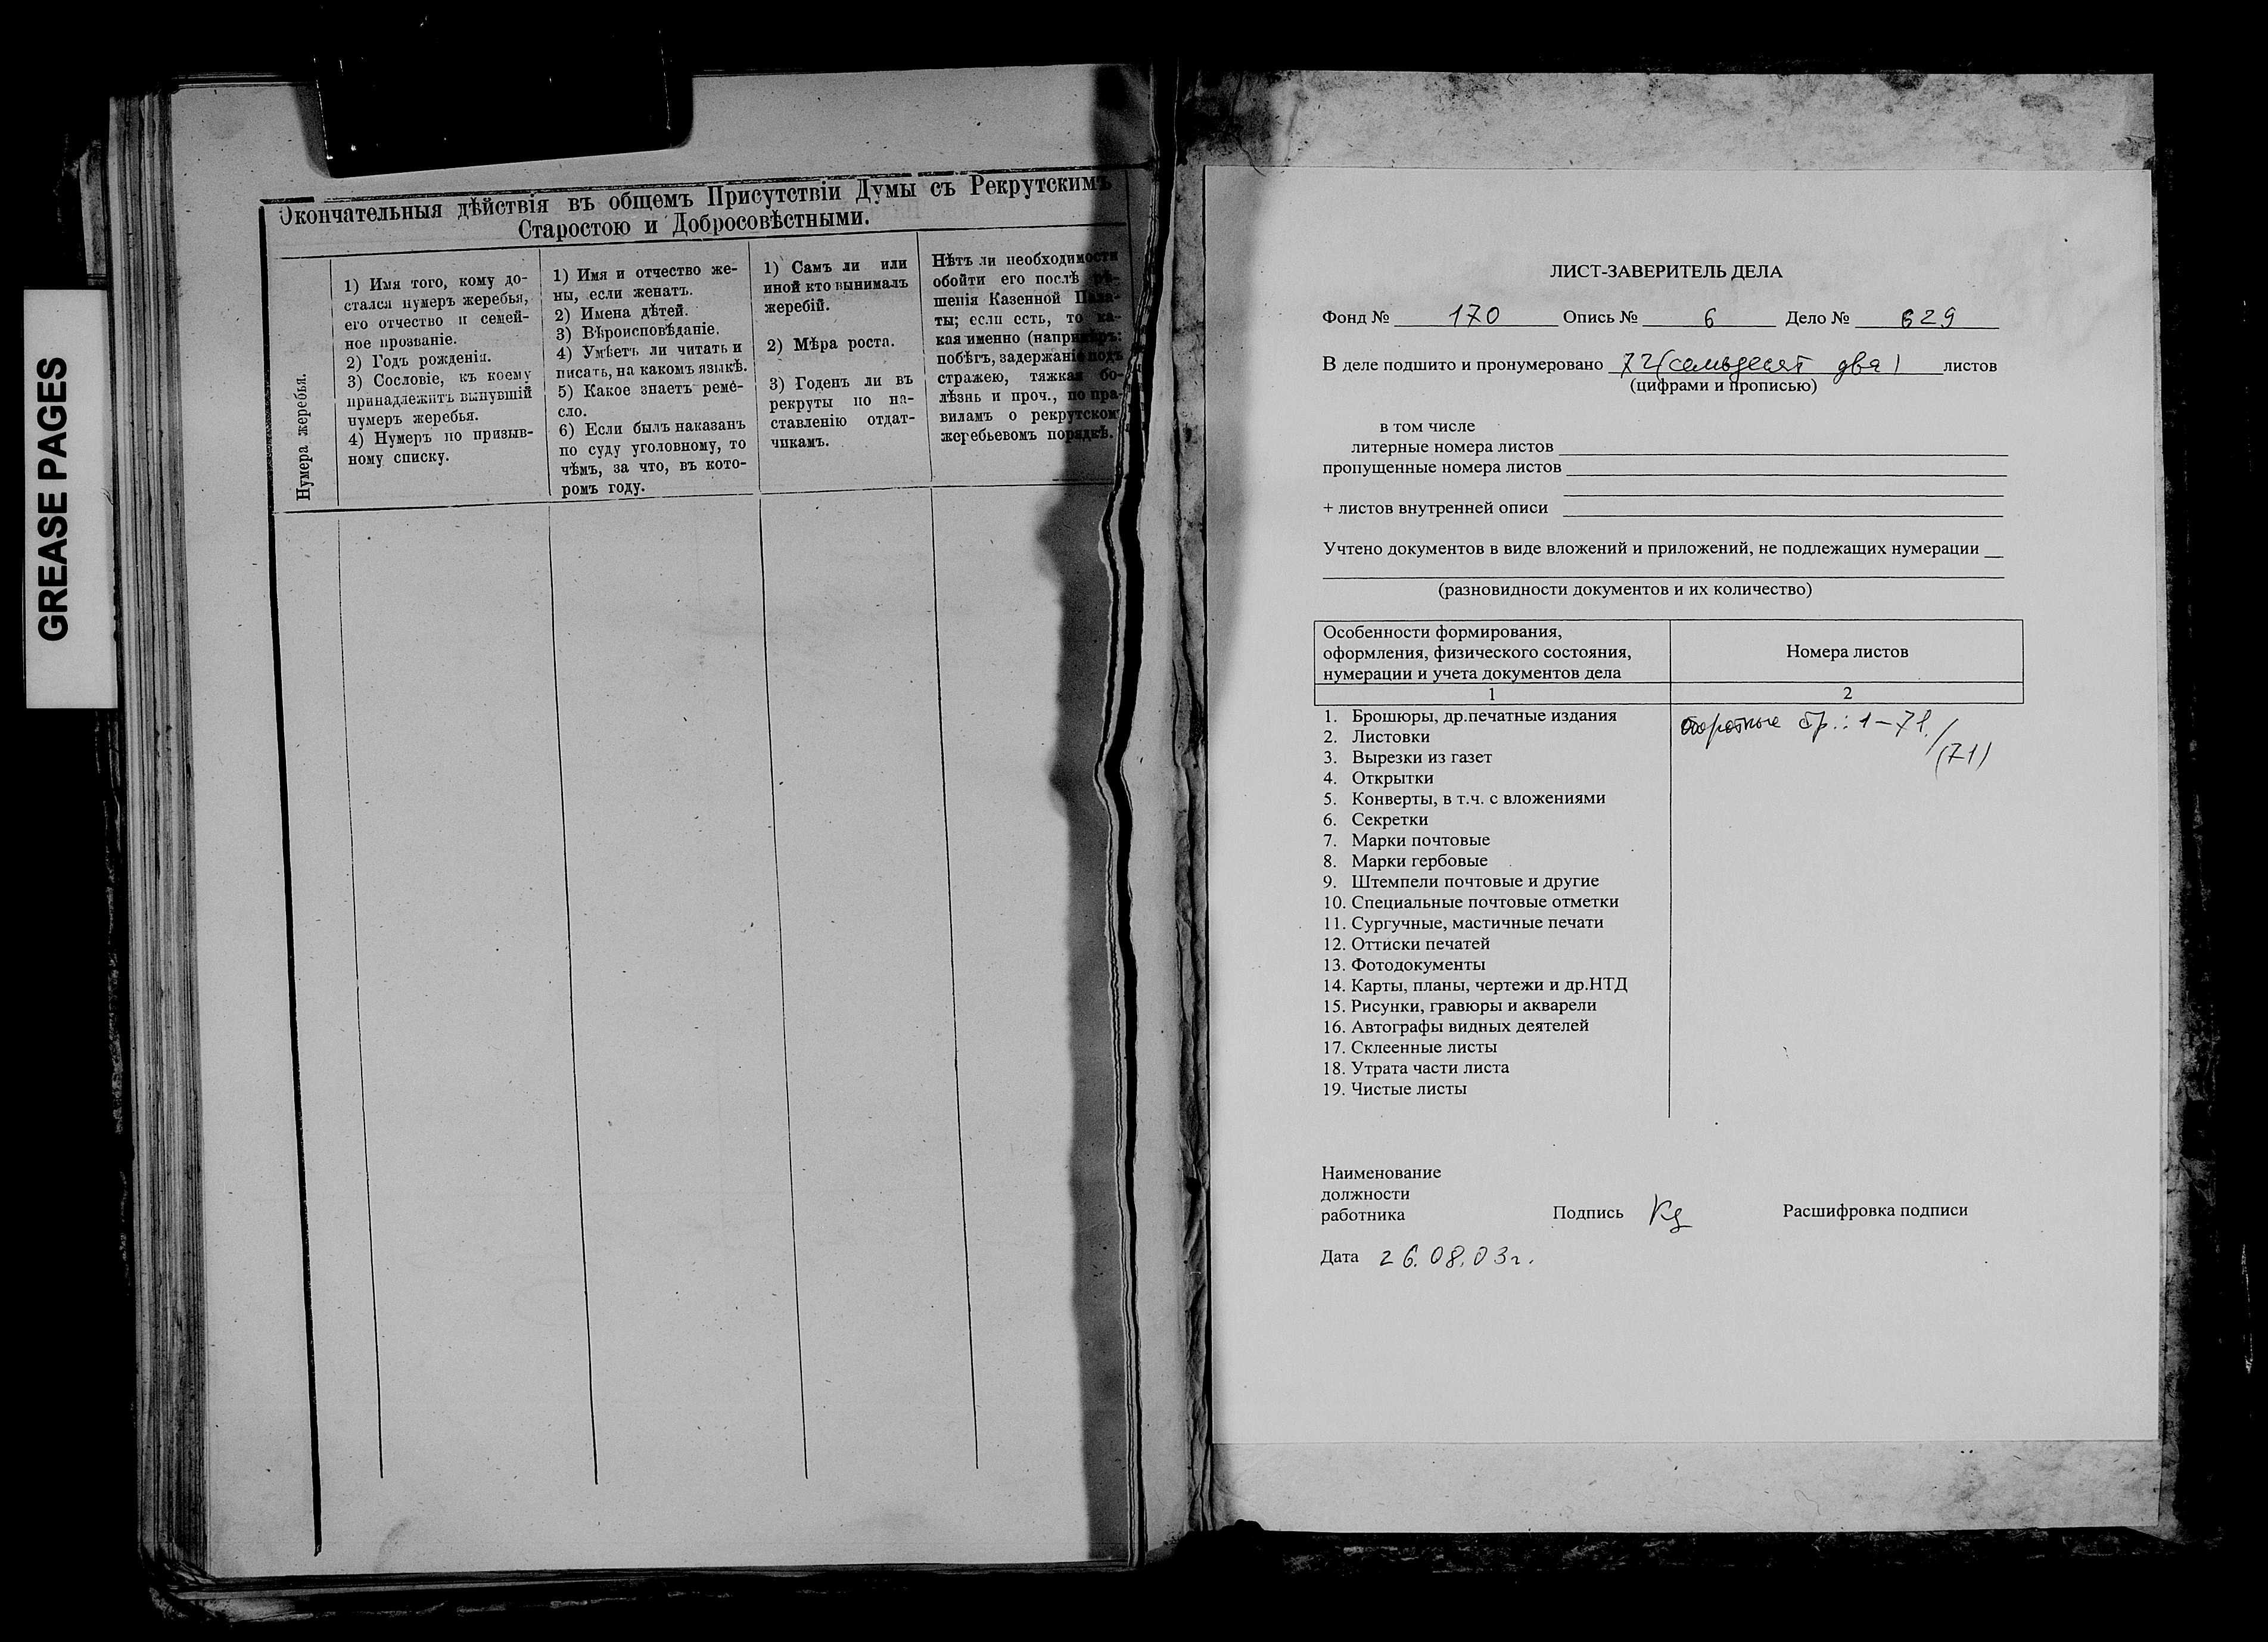 GREASE PAGES
Окончательныя дѣйствія въ общемъ Присутствіи Думы съ Рекрутскимъ
Старостою и Добросовѣстными.
Нумера жеребья.
1) Имя того, кому до-
стался нумеръ жеребья,
его отчество и семей-
ное прозваніе.
2) Годъ рожденія.
3) Сословіе, къ коему
принадлежитъ вынувшій
нумеръ жеребья.
4) Нумеръ по призыв-
ному списку.
1) Имя и отчество же-
ны, если женатъ.
2) Имена дѣтей.
3) Вѣроисповѣданіе.
4) Умѣетъ ли читать и
писать, на какомъ языкѣ.
5) Какое знаетъ реме-
сло.
6) Если былъ наказанъ
по суду уголовному, то
чѣмъ, за что, въ кото-
ромъ году.
1) Самъ ли или
иной кто вынималъ
жеребій.
2) Мѣра роста.
3) Годенъ ли въ
рекруты по на-
ставленію отдат-
чикамъ.
Нѣтъ ли необходимости
обойти его послѣ рѣ-
шенія Казенной Пала-
ты; если есть, то ка-
кая именно (напримѣръ:
побѣгъ, задержаніе подъ
стражею, тяжкая бо-
лѣзнь и проч., по пра-
виламъ о рекрутскомъ
жеребьевомъ порядкѣ.
ЛИСТ-ЗАВЕРИТЕЛЬ ДЕЛА
Фонд № 170 Опись № 6 Дело № 629
В деле подшито и пронумеровано 72 (семьдесят два) листов
(цифрами и прописью)
в том числе
литерные номера листов
пропущенные номера листов
+ листов внутренней описи
Учтено документов в виде вложений и приложений, не подлежащих нумерации
(разновидности документов и их количество)
Особенности формирования,
оформления, физического состояния,
нумерации и учета документов дела
Номера листов
1 2
1. Брошюры, др.печатные издания
оборотные стр.: 1-71/
(71)
2. Листовки
3. Вырезки из газет
4. Открытки
5. Конверты, в т.ч. с вложениями
6. Секретки
7. Марки почтовые
8. Марки гербовые
9. Штемпели почтовые и другие
10. Специальные почтовые отметки
11. Сургучные, мастичные печати
12. Оттиски печатей
13. Фотодокументы
14. Карты, планы, чертежи и др.НТД
15. Рисунки, гравюры и акварели
16. Автографы видных деятелей
17. Склеенные листы
18. Утрата части листа
19. Чистые листы
Наименование
должности
работника Подпись Расшифровка подписи
Дата 26.08.03г.